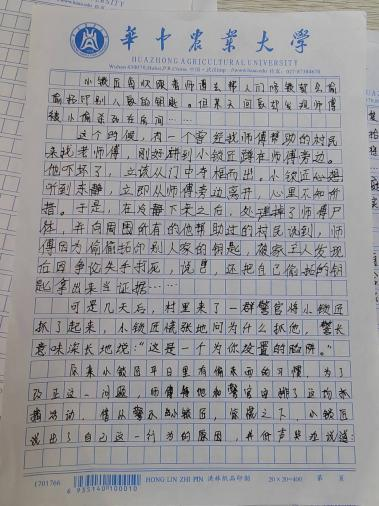 華中農業大學
HUAZHONG AGRICULTURAL UNIVERSITY
小锁匠每次跟着师傅去帮人们修锁都会偷
偷拓印别人家的钥匙。但某天回家却发现师傅
被小偷杀死在房间……
这个时候，有一个曾经被师傅帮助的村民
来找老师傅，刚好碰到小锁匠蹲在师傅旁边。
他吓坏了，立刻从门中夺框而出。小锁匠
听到动静，立即从师傅旁边离开，心里不知所
措。于是，在冷静下来之后，处理掉了师傅尸
体，并向周围所有的他帮助过的村民说到，师
傅因为偷偷拓印别人家的钥匙，被家主人发现
后因争议失手打死，说，还把自己偷拓的钥
匙拿出来当证据……
可是几天后，村里来了一群警官将小锁匠
抓了起来，小锁匠慌张地问为什么抓他，警长
意味深长地说：“这是一个为你设置的陷阱。”
原来小锁匠平日里有偷东西的习惯，为了
改正这一问题，师傅和警官安排了这场抓
捕活动，小锁匠，之下，小锁匠
说出了自己这一行为的原因，并低声哭泣说道：
1701766
6 935140 100010
HONG LIN ZHI PIN 洪林纸品印制
20×20=400
第 页